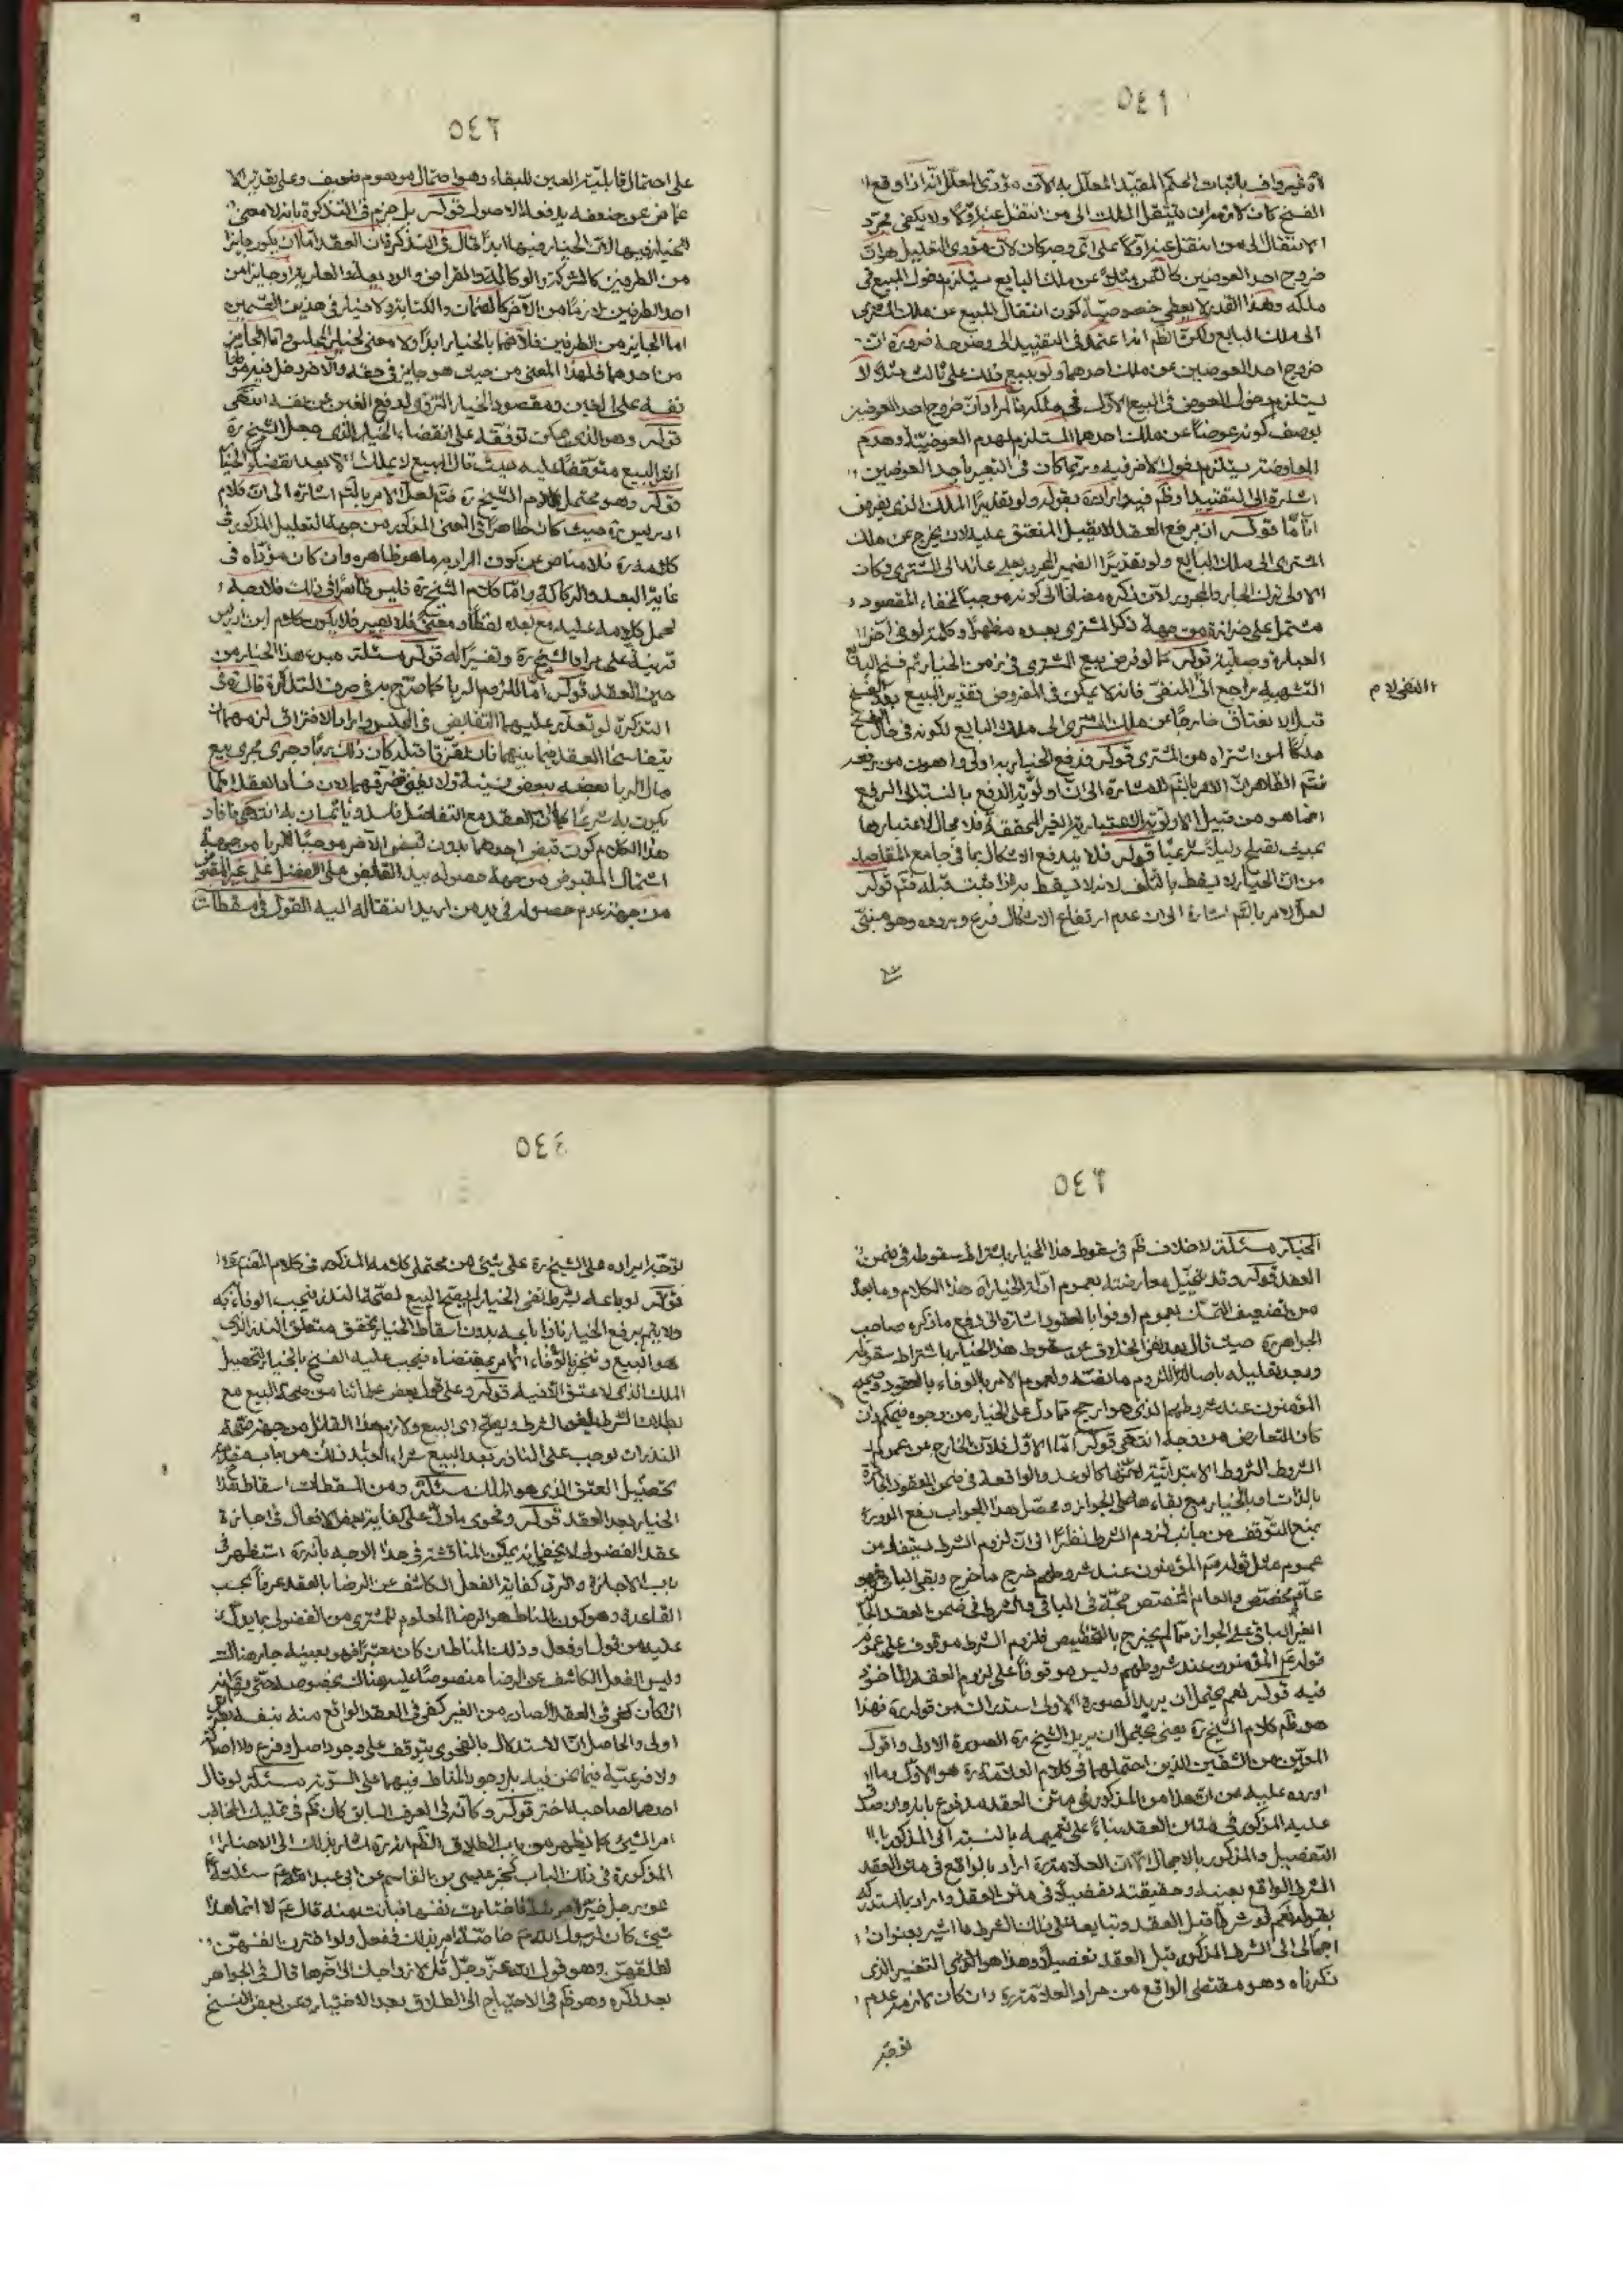 ٥٤١
لأنه غير واف باثبات الحكم المقيد المعلل به لان مؤدى المعلل انه اذا وقع
الفسخ كان لازمه ان ينتقل الملك الى من انتقل عنه اولا ولا يكفى مجرد
الانتقال الى من انتقل عنه اولا على اى وجه كان لان مؤدى التعليل هو ان
خروج احد العوضين كالثمن مثلا عن ملك البايع يستلزم دخول المبيع فى
ملكه وهذا القدر لا يعطى خصوصية كون انتقال المبيع عن ملك المشترى
الى ملك البايع ولكن الظم انه اعتمد فى التقييد الى وضوحه ضرورة ان
خروج احد العوضين عن ملك احدهما ولو ببيع ذلك على ثالث مثلا لا
يستلزم دخول العوض فى البيع الاول فى ملكه فالمراد ان خروج احد العوضين
بوصف كونه عوضا عن ملك احدهما المستلزم لهدم العوضية وهدم
المعاوضة يستلزم دخول الاخر فيه وربما كان فى التعبير باحد العوضين
اشارة الى التقييد
انا ما قوله ان يرفع العقد لا يقبل المنعتق عليه لان يخرج عن ملك
المشترى الى ملك البايع ولو تقديرا الضمير المجرور بعلى عائد الى المشترى وكان
الاولى ترك الجار والمجرور لان ذكره مضافا الى كونه موجبا لخفاء المقصود
مشتمل على حزازة من جهة ذكر المشترى بعده مظهرا وكلمة لو فى اخر
العبارة وصلية قوله كما لو فرض بيع المشترى فى زمن الخيار ثم فسخ البايع
التشبيه راجع الى المنفى فانه لا يمكن فى المفروض تقدير المبيع بعد الفسخ
قبل الانعتاق خارجا عن ملك المشترى الى ملك البايع لكونه فى حال الفسخ
ملكا لمن اشتراه من المشترى قوله فدفع الخيار به اولى واهون من رفعه
فتم الظاهر ان الامر بالتم للاشارة الى ان اولوية الدفع بالنسبة الى الرفع
انما هو من قبيل الاولوية الاعتبارية الغير المحققة فلا مجال لاعتبارها
بحيث تقع دليلا شرعيا قوله فلا يندفع الاشكال بما فى جامع المقاصد
من ان الخيار لا يسقط بالتلف لانه لا يسقط به اذا ثبت قبله فتم قوله
لعل الامر بالتم اشارة الى ان عدم ارتفاع الاشكال فرع وروده وهو مبنى
٥٤٢
على احتمال قابلية العين للبقاء وهو احتمال موهوم ضعيف وعلى تقدير
غاض عن ضعفه يدفعه الاصول قوله بل جزم فى التذكرة بانه لا معنى
للخيار فيها لان الخيار فيها ابدا قال فى التذكرة ان العقد اما ان يكون جايزا
من الطرفين كالشركة والوكالة والقراض والوديعة والعارية او جايزا من
احد الطرفين لازما من الاخر كالضمان والكتابة ولا خيار فى هذين القسمين
اما الجايز من الطرفين فلانهما بالخيار ابدا ولا معنى لخيار المجلس واما الجايز
من احدهما فلهذا المعنى من حيث هو جايز فى حقه والاخر دخل فيه موطنا
نفسه على الغبن ومقصود الخيار التروى لدفع الغبن عن نفسه انتهى
قوله وهو الذى يمكن توقفه على انقضاء الخيار الذى جعل الشيخ ره
اثر البيع متوقفا عليه حيث قال المبيع لا يملك الا بعد انقضاء الخيار
قوله وهو محتمل كلام الشيخ ره فتم لعل الامر بالتم اشارة الى ان كلام
ادريس ره حيث كان ظاهرا فى المعنى المذكور من جهة التعليل المذكور فى
كلامه ره فلا مناص عن كون المراد به ما هو ظاهره وان كان مؤداه فى
غاية البعد والركاكة واما كلام الشيخ ره فليس ظاهرا فى ذلك فلا وجه
لحمل كلامه عليه مع بعده لفظا ومعنى فلا يكون كلام ابن ادريس
قرينة على مراد الشيخ ره وتفسيرا له قوله مسئلة مبدء هذا الخيار من
حين العقد قوله اما للزوم الربا كما صرح به فى صرف التذكرة قال فى
التذكرة لو تعذر عليهما التقابض فى المجلس وارادا الافتراق لزمهما ان
يتفاسخا العقد بينهما فان تفرقا قبله كان ذلك ربا وجرى مجرى بيع
مال الربا بعضه ببعض نسيئة ولا يغنى تفرقهما لان فساد العقد انما
يكون به شرعا كما ان العقد مع التفاضل فاسد ويأثمان به انتهى فافاد
هذا الكلام كون قبض احدهما بدون قبض الاخر موجبا للربا من جهة
اشتمال المقبوض من جهة حصوله بيد القابض على الفضل على غير المقبوض
من جهة عدم حصوله فى يد من اريد انتقاله اليه القول فى مسقطات
٥٤٣
الخيار مسئلة لا خلاف ظم فى سقوط هذا الخيار باشتراط سقوطه فى ضمن
العقد قوله وقد يتخيل معارضته بعموم ادلة الخيار اه هذا الكلام وما بعده
من تضعيف التمسك بعموم اوفوا بالعقود اشارة الى دفع ما ذكره صاحب
الجواهر ره حيث قال بعد نفى الخلاف عن سقوط هذا الخيار باشتراط سقوطه
وبعد تعليله باصالة اللزوم ما نصه ولعموم الامر بالوفاء بالعقود وعموم
المؤمنون عند شروطهم الذى هو ارجح مما دل على الخيار من وجوه فيحكم وان
كان التعارض من وجه انتهى قوله اما الاول فلان الخارج عن عموم
الشروط الشروط الابتدائية لانها كالوعد والواقعة فى ضمن العقود الجائزة
بالذات او بالخيار مع بقاءها على الجواز ومحصل هذا الجواب دفع الدور
بمنع التوقف من جانب لزوم الشرط نظرا الى ان لزوم الشرط يستفاد من
عموم مثل قوله عم المؤمنون عند شروطهم خرج ما خرج وبقى الباقى فهو
عام مخصص والعام المخصص حجة فى الباقى والشرط فى ضمن العقد الجائز
الغير الباقى على الجواز مما لم يخرج بالتخصيص فلزوم الشرط موقوف على عموم
قوله عم المؤمنون عند شروطهم وليس موقوفا على لزوم العقد الماخوذ
فيه قوله نعم يحتمل ان يريد الصورة الاولى استدراك من قوله ره فهذا
هو ظم كلام الشيخ ره يعنى يحتمل ان يريد الشيخ ره الصورة الاولى واقول
المتعين من الشقين الذين احتملهما فى كلام العلامة ره هو الاول وما
اورده عليه من ان هذا من المذكور فى متن العقد مدفوع بانه وان صدق
عليه المذكور فى متن العقد بناء على تعميمه بالنسبة الى المذكور
التفصيل والمذكور بالاجمال الا ان العلامة ره اراد بالواقع فى متن العقد
الشرط الواقع بعينه وحقيقته تفصيلا فى متن العقد واراد بالمستدرك
بقوله نعم لو شرطا قبل العقد وتبايعا على ذلك الشرط ما اشير بعنوان
اجمالى الى الشرط المذكور قبل العقد تفصيلا وهذا هو التفسير الذى
ذكرناه وهو مقتضى الواقع من مراد العلامة ره وان كان لازمه عدم
توجه
٥٤٤
توجه ايراده على الشيخ ره على شئ من محتملى كلامه المذكور فى كلام المصنف ره
قوله لو باعه بشرط نفى الخيار لم يصح البيع لصحة النذر فيجب الوفاء به
ولا يتم برفع الخيار فاذا باعه بدون اسقاط الخيار تحقق متعلق النذر الذى
هو البيع وتنجز بالوفاء الامر بمقتضاه فيجب عليه الفسخ بالخيار لتحصيل
الملك الذى لا عتق الا فيه قوله وعلى قول بعض علمائنا من صحة البيع مع
بطلان الشرط يلغو الشرط ويصح اى البيع ولازم هذا القائل من جهة صحة
النذر ان يوجب على الناذر بعد البيع شراء العبد ثانيا من باب مقدمة
تحصيل العتق الذى هو الملك مسئلة ومن المسقطات اسقاط هذا
الخيار بعد العقد قوله وفحوى ما دل على كفاية بعض الافعال فى اجازة
عقد الفضولى لا يخفى انه يمكن المناقشة فى هذا الوجه بانه ره استظهر فى
باب الاجازة والرد كفاية الفعل الكاشف عن الرضا بالعقد عرفا بحسب
القاعدة وهو كون المناط هو الرضا المعلوم للمشترى من الفضولى بما يدل
عليه من قول او فعل وذلك المناط ان كان معتبرا فهو بعينه جار هنالك
وليس الفعل الكاشف عن الرضا منصوصا عليه هنالك بخصوصه حتى يقال
ان كان كفى فى العقد الصادر من الغير كفى فى العقد الواقع منه بنفسه بطريق
اولى والحاصل ان الاستدلال بالفحوى يتوقف على وجود اصل وفرع ولا اصلية
ولا فرعية فيما نحن فيه بل وجود المناط فيهما على السوية مسئلة لو قال
احدهما لصاحبه اختر قوله وكانه فى العرف السابق كان ظم فى تمليك المخاطب
امر الشئ كما يظهر من باب الطلاق الظم انه ره اشار بذلك الى الاخبار
المذكورة فى ذلك الباب كخبر عيسى بن القاسم عن ابى عبد الله عم سئلته
عن رجل خير امرأته فاختارت نفسها بانت منه قال عم لا انما هذا
شئ كان لرسول الله ص خاصة امر بذلك ففعل ولو اخترن انفسهن
لطلقهن وهو قول الله عز وجل قل لازواجك الى اخرها قال فى الجواهر
بعد ذكره وهو ظم فى الاحتياج الى الطلاق بعد الاختيار وعن بعض النسخ